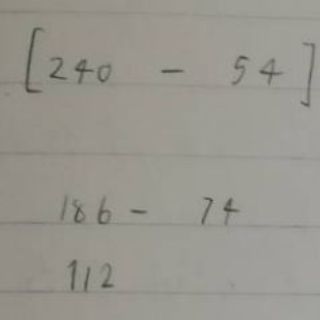 [240 - 54]
186 - 74
112